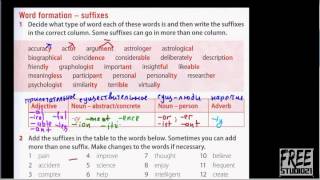 Word formation – suffixes
1 Decide what type of word each of these words is and then write the suffixes
in the correct column. Some suffixes can go in more than one column.
accuracy actor argument astrologer astrological
biographical coincidence considerable deliberately description
friendly graphologist important insightful likeable
meaningless participant personal personality researcher
physicist psychologist similarity terrible virtually
прилагательное существительное сущ-люди наречие
Adjective Noun – abstract/concrete Noun – person Adverb
2 Add the suffixes in the table to the words below. Sometimes you can add
more than one suffix. Make changes to the words if necessary.
1 pain 4 improve 7 thought 10 believe
2 accident 5 science 8 enjoy 11 frequent
3 complex 6 help 9 intelligent 12 create
FREE
STUDIO21